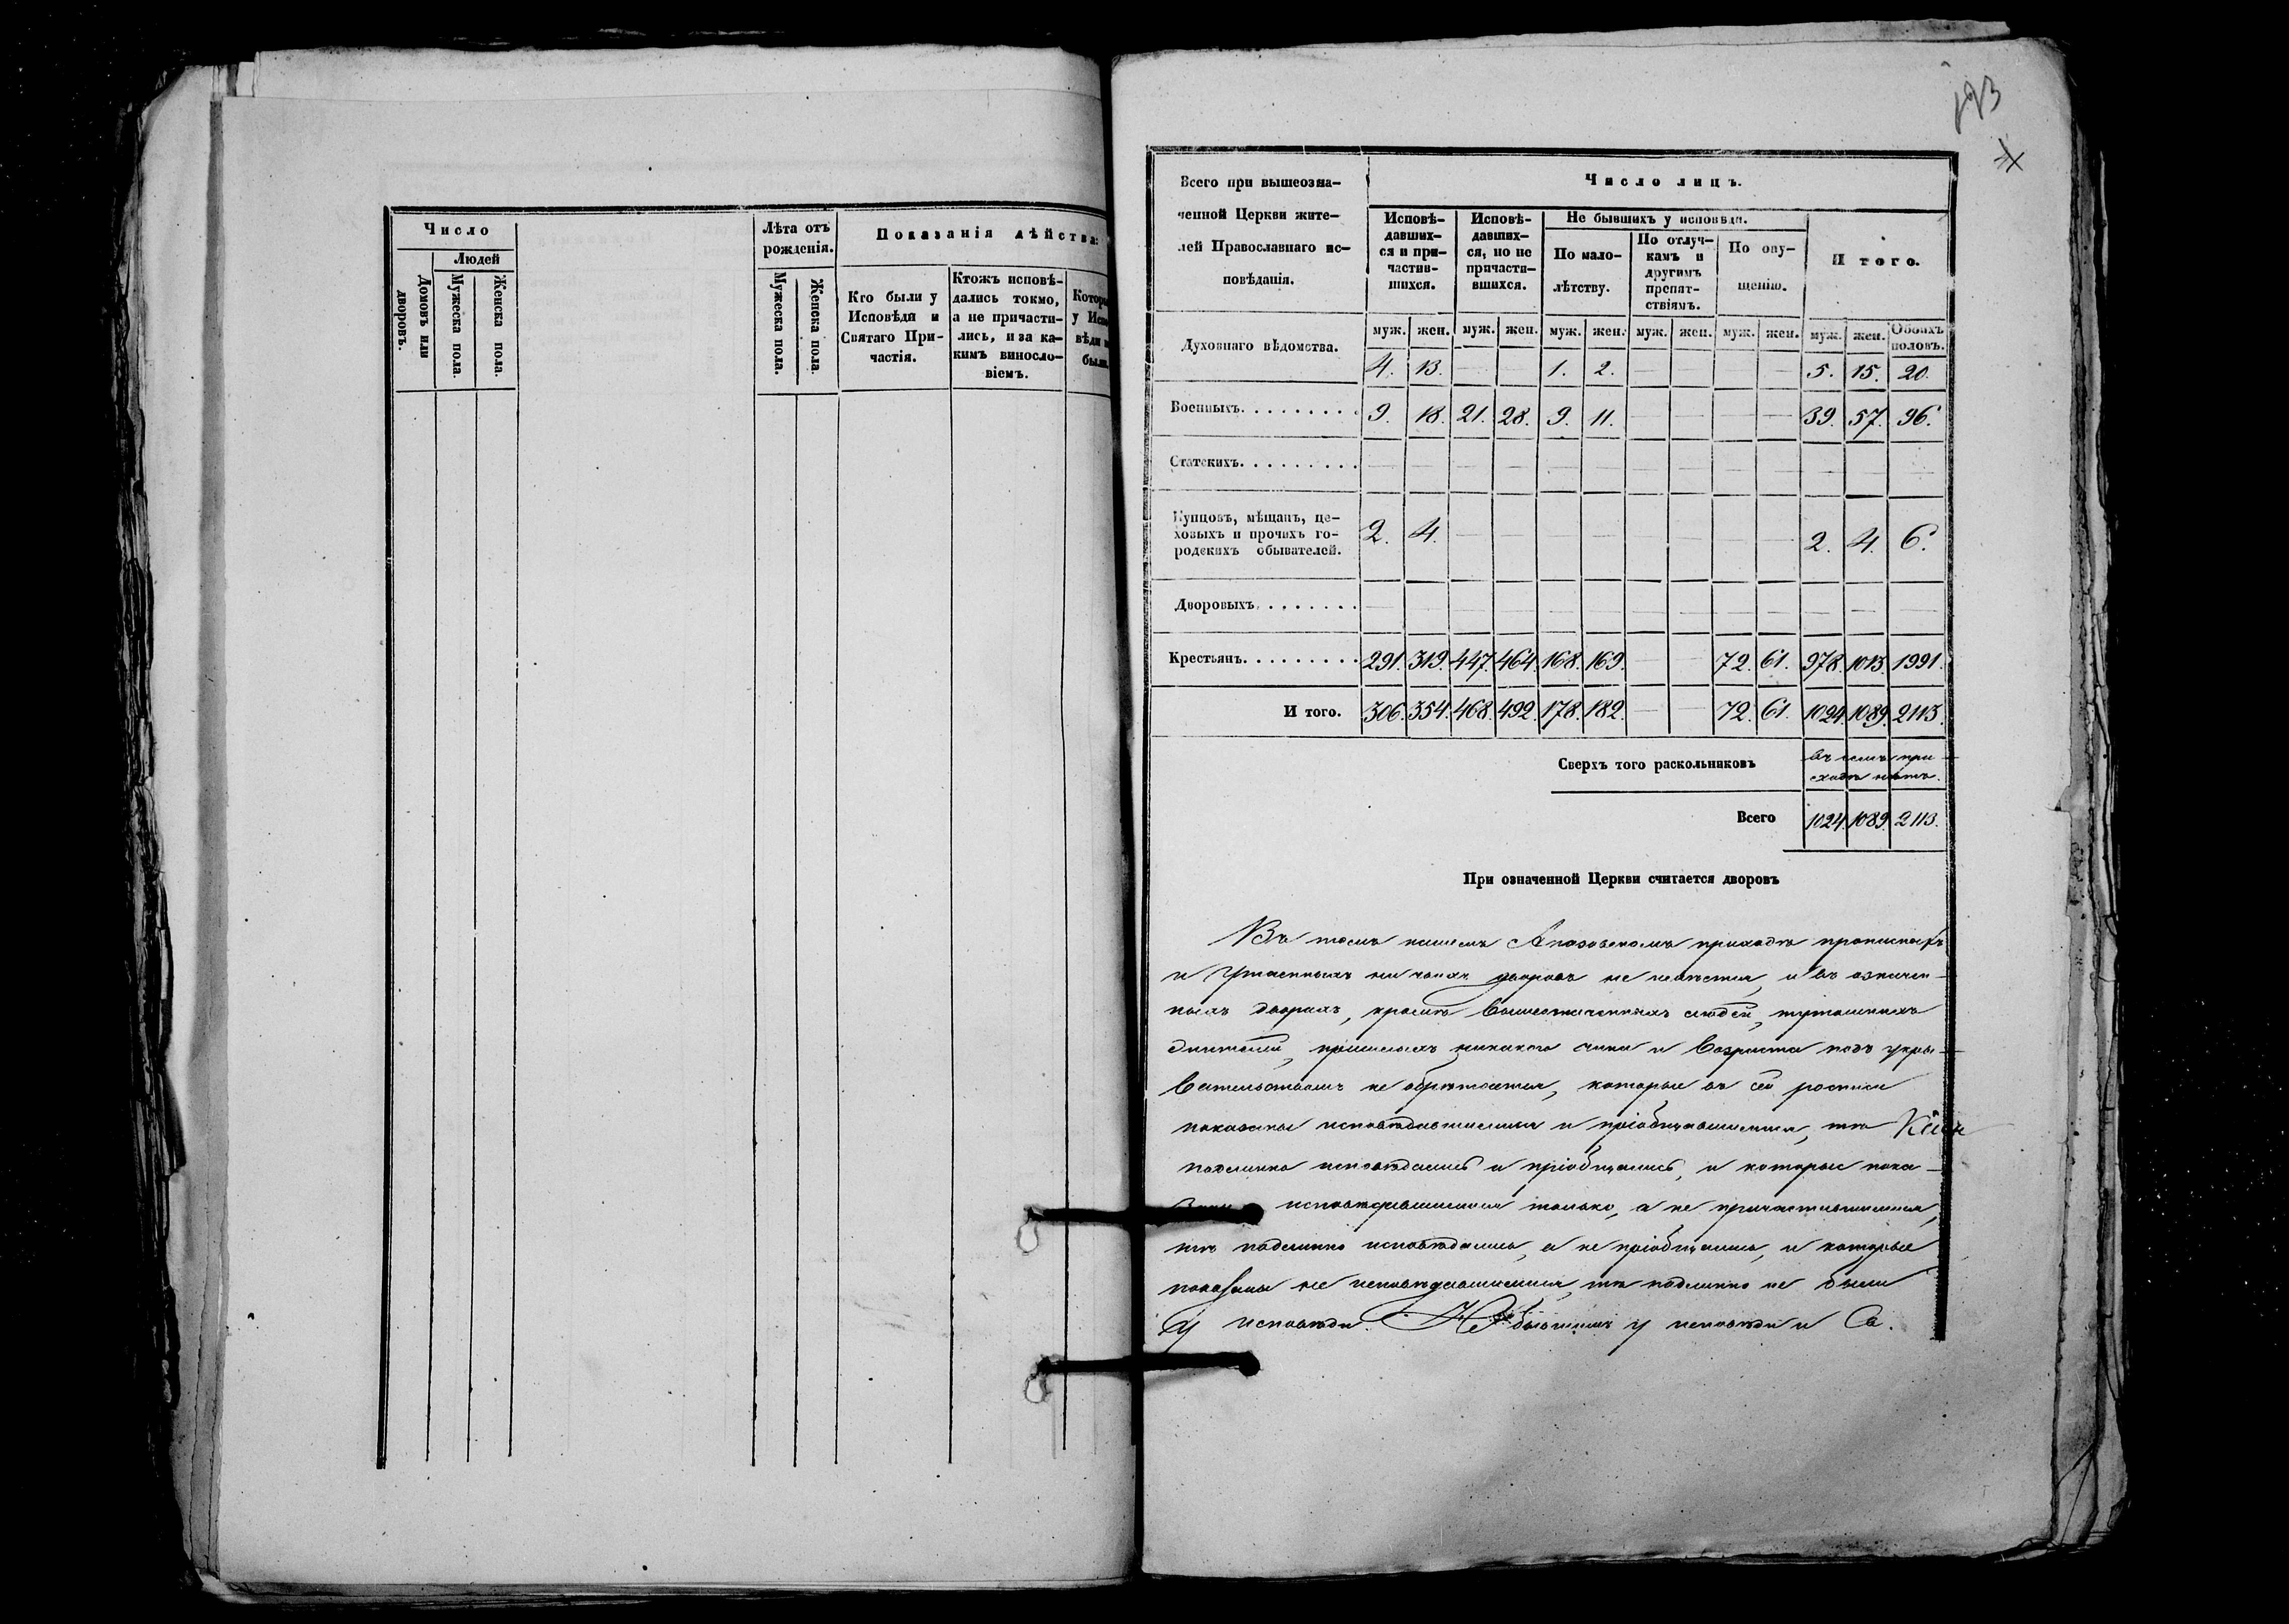 193
Число
Людей
Домовъ или дворовъ.
Мужеска пола.
Женска пола.
Лѣта отъ рожденія.
Мужеска пола.
Женска пола.
Показанія дѣйства:
Кто были у Исповѣди и Святаго Причастія.
Ктожъ исповѣ-
дались токмо,
а не причасти-
лись, и за ка-
кимъ виносло-
віемъ.
Всего при вышеозна-
ченной Церкви жите-
лей Православнаго ис-
повѣданія.
Число лицъ.
Исповѣ-
давших-
ся и при-
частив-
шихся.
Исповѣ-
давших-
ся, но не
причасти-
вшихся.
Не бывшихъ у исповѣди.
По мало-
лѣтству.
По отлуч-
камъ и
другимъ
препят-
ствіямъ.
По опу-
щенію.
Итого.
муж. жен. муж. жен. муж. жен. муж. жен. муж. жен. муж. жен. Обоихъ половъ.
Духовнаго вѣдомства. 4. 13. — — 1. 2. — — — — 5. 15. 20.
Военныхъ. 9. 18. 21. 28. 9. 11. — — — — 39. 57. 96.
Статскихъ. — — — — — — — — — — — — —
Купцовъ, мѣщанъ, це-
ховыхъ и прочихъ го-
родскихъ обывателей. 2. 4. — — — — — — — — 2. 4. 6.
Дворовыхъ. — — — — — — — — — — — — —
Крестьянъ. 291. 319. 447. 464. 168. 169. — — 72. 61. 978. 1013. 1991.
Итого. 306. 354. 468. 492. 178. 182. — — 72. 61. 1024. 1089. 2113.
Сверхъ того раскольниковъ въ семъ при-
ходѣ нѣтъ.
Всего 1024. 1089. 2113.
При означенной Церкви считается дворовъ
Въ томъ нашемъ приходѣ
и утаенныхъ ни чьихъ дворовъ не имѣется, и въ означен-
ныхъ дворахъ, кромѣ вышеозначенныхъ людей, тутошнихъ
пришлыхъ никакого чина и возраста подъ укры-
вательствомъ не обрѣтается, которые въ сей росписи
показаны исповѣдавшимися и пріобщавшимися, тѣ
подлинно исповѣдались и пріобщались, и которые пока-
исповѣдавшимися только, а не причастившимися,
тѣ подлинно исповѣдались, а не пріобщались, и которые
показаны не исповѣдавшимися, тѣ подлинно не были
у исповѣди. Не бывшимъ у исповѣди и Св.